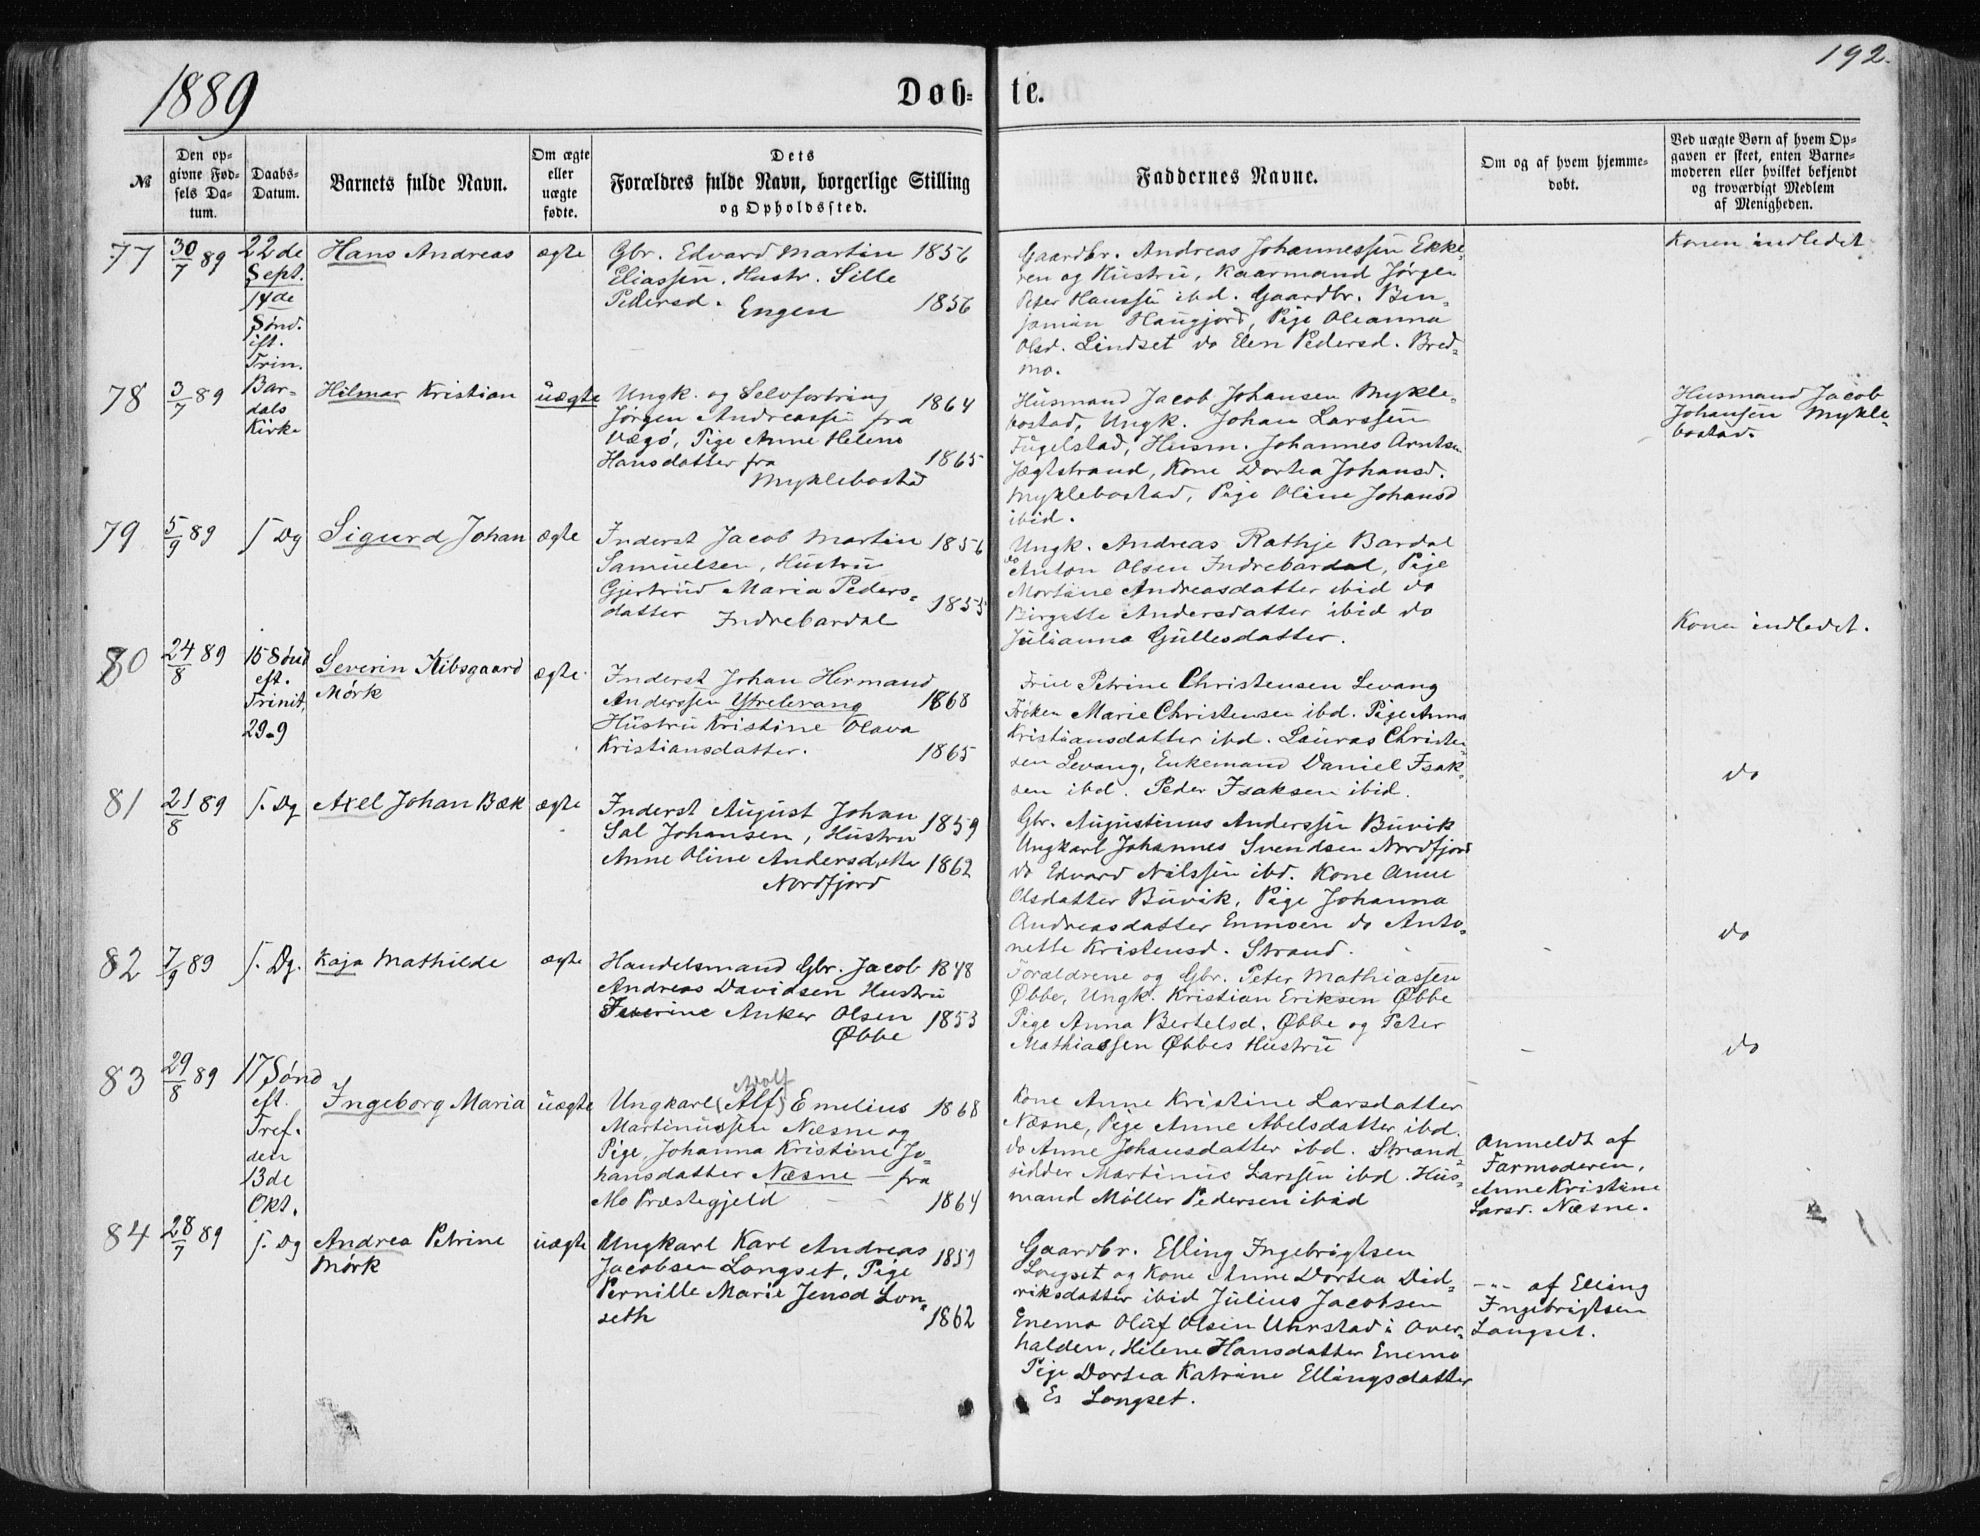 192.
1889
Døb-
te.
№
Den op-
givne Fød-
sels Da-
tum.
Daabs-
Datum.
Barnets fulde Navn.
Om ægte
eller
uægte
fødte.
Dets
Forældres fulde Navn, borgerlige Stilling
og Opholdssted.
Faddernes Navne.
Om og af hvem hjemme-
døbt.
Ved uægte Børn af hvem Op-
gaven er skeet, enten Barne-
moderen eller hvilket bekjendt
og troværdigt Medlem
af Menigheden.
77
30/7 89
22de
Sept.
14de
Sønd.
eft.
Trin.
Bar-
dals
Kirke
Hans Andreas
ægte
Gbr. Edvard Martin 1856
Eliassen. Hustr. Sille
Pedersd. Engen 1856
Gaardbr. Andreas Johannessen Ekke-
ren og Hustru, Kaarmand Jørgen
Peter Hanssen ibd. Gaardbr. Ben-
jamin Haugjord, Pige Oleanna
Olsd. Lindset do Elen Pedersd. Bred-
mo.
Konen indledet
78
3/7 89
Hilmar Kristian
uægte
Ungk. og Selvfostring 1864
Jørgen Andreassen fra
Vægø, Pige Anne Helene
Hansdatter fra 1865
Myklebostad
Husmand Jacob Johansen Mykle-
bostad, Ungk. Johan Larssen
Fugelstad, Husm. Johannes Arntsen
Jægtstrand, Kone Dortea Johansd.
Myklebostad, Pige Oline Johansd
ibid.
Husmand Jacob
Johansen Mykle-
bostad.
79
5/9 89
S. Dg
Sigurd Johan
ægte
Inderst Jacob Martin 1856
Samuelsen, Hustru
Gjertrud Maria Peders-
datter Indrebardal 1855
Ungk. Andreas Rathje Bardal
do Anton Olsen Indrebardal, Pige
Mortine Andreasdatter ibid do
Birgette Andersdatter ibid do
Julianna Gullesdatter.
Konen indledet.
80
24/8 89
15 Sønd
eft.
Trinit,
29-9
Severin Kibsgaard
Mørk
ægte
Inderst Johan Hermand
Anderssen Ytrelevang 1868
Hustru Kristine Olava
Kristiansdatter. 1865
Frue Petrine Christensen Levang
Frøken Marie Christensen ibd. Pige Anna
Kristiansdatter ibd. Lauras Christen-
sen Levang, Enkemand Daniel Isak-
sen ibd. Peder Isaksen ibid.
do
81
21/8 89
S. Dg
Axel Johan Bæk
ægte
Inderst August Johan
Sal Johansen, Hustru 1859
Anne Oline Andersdatter 1862
Nordfjord
Gbr. Augustinus Anderssen Buvik
Ungkarl Johannes Svendsen Nordfjord
do Edvard Nilssen ibd. Kone Anne
Olsdatter Buvik, Pige Johanna
Andreasdatter Enmoen do Anto-
nette Kristensd. Strand.
do
82
7/9 89
S. Dg.
Kaja Mathilde
ægte
Handelsmand Gbr. Jacob 1848
Andreas Davidsen Hustru
Severine Anker Olsen 1853
Øbbe
Forældrene og Gbr. Peter Mathiassen
Øbbe, Ungk. Kristian Eriksen Øbbe
Pige Anna Bertelsd. Øbbe og Peter
Mathiassen Øbbes Hustru
do
83
29/8 89
17 Sønd
eft.
Tref.
den
13de
Okt.
Ingeborg Maria
uægte
Adolf
Ungkarl (Alf) Emelius 1868
Martinussen Næsne og
Pige, Johanna Kristine Jo-
hansdatter Næsne - fra
Mo Præstegjeld 1864
Kone Anne Kristine Larsdatter
Næsne, Pige Anne Abelsdatter ibd.
do Anne Johansdatter ibd. Strand-
sidder Martinus Larssen ibd. Hus-
mand Møller Pedersen ibid
Anmeldt af
Farmoderen,
Anne Kristine
Larsd. Næsne.
84
28/7 89
S. Dg
Andrea Petrine
Mørk
uægte
Ungkarl Karl Andreas
Jacobsen Longset, Pige 1859
Pernille Marie Jensd Lon-
seth 1862
Gaardbr. Elling Ingebrigtsen
Longset og Kone Anne Dortea Did-
riksdatter ibid Julius Jacobsen
Enemo Oluf Olsen Unrstad i Over-
halden, Hilene Hansdatter Enemo
Pige Dortea Katrine Ellingsdatter
Longset.
-"- af Elling
Ingebrigtsen
Longset.